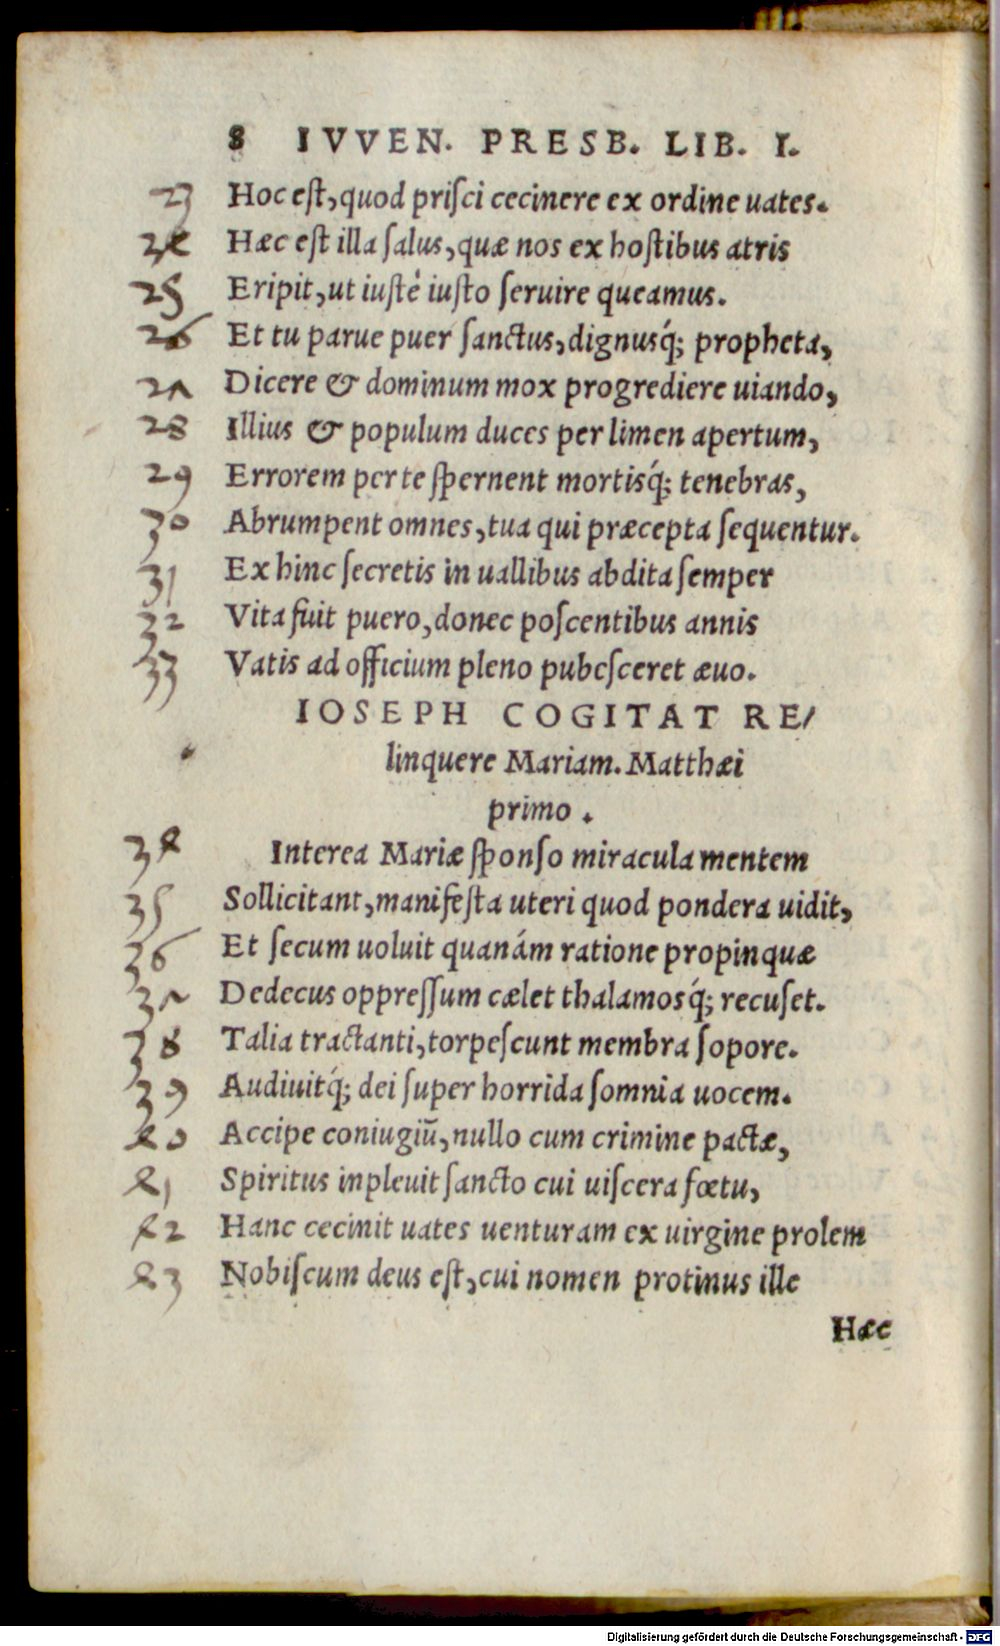 8 IVVEN. PRESB. LIB. I.
23 Hoc est, quod prisci cecinere ex ordine uates.
24 Hæc est illa salus, quæ nos ex hostibus atris
25 Eripit, ut iustè iusto seruire queamus.
26 Et tu parue puer sanctus, dignusq́; propheta,
27 Dicere & dominum mox progrediere uiando,
28 Illius & populum duces per limen apertum,
29 Errorem per te spernent mortisq́; tenebras,
30 Abrumpent omnes, tua qui præcepta sequentur.
31 Ex hinc secretis in uallibus abdita semper
32 Vita fuit puero, donec poscentibus annis
33 Vatis ad officium pleno pubesceret æuo.
IOSEPH COGITAT RE/
linquere Mariam. Matthæi
primo.
34 Interea Mariæ sponso miracula mentem
35 Sollicitant, manifesta uteri quod pondera uidit,
36 Et secum uoluit quanám ratione propinquæ
37 Dedecus oppressum cælet thalamosq́; recuset.
38 Talia tractanti, torpescunt membra sopore.
39 Audiuitq́; dei super horrida somnia uocem.
40 Accipe coniugiū, nullo cum crimine pactæ,
41 Spiritus inpleuit sancto cui uiscera fœtu,
42 Hanc cecinit uates uenturam ex uirgine prolem
43 Nobiscum deus est, cui nomen protinus ille
Hæc
Digitalisierung gefördert durch die Deutsche Forschungsgemeinschaft - DFG